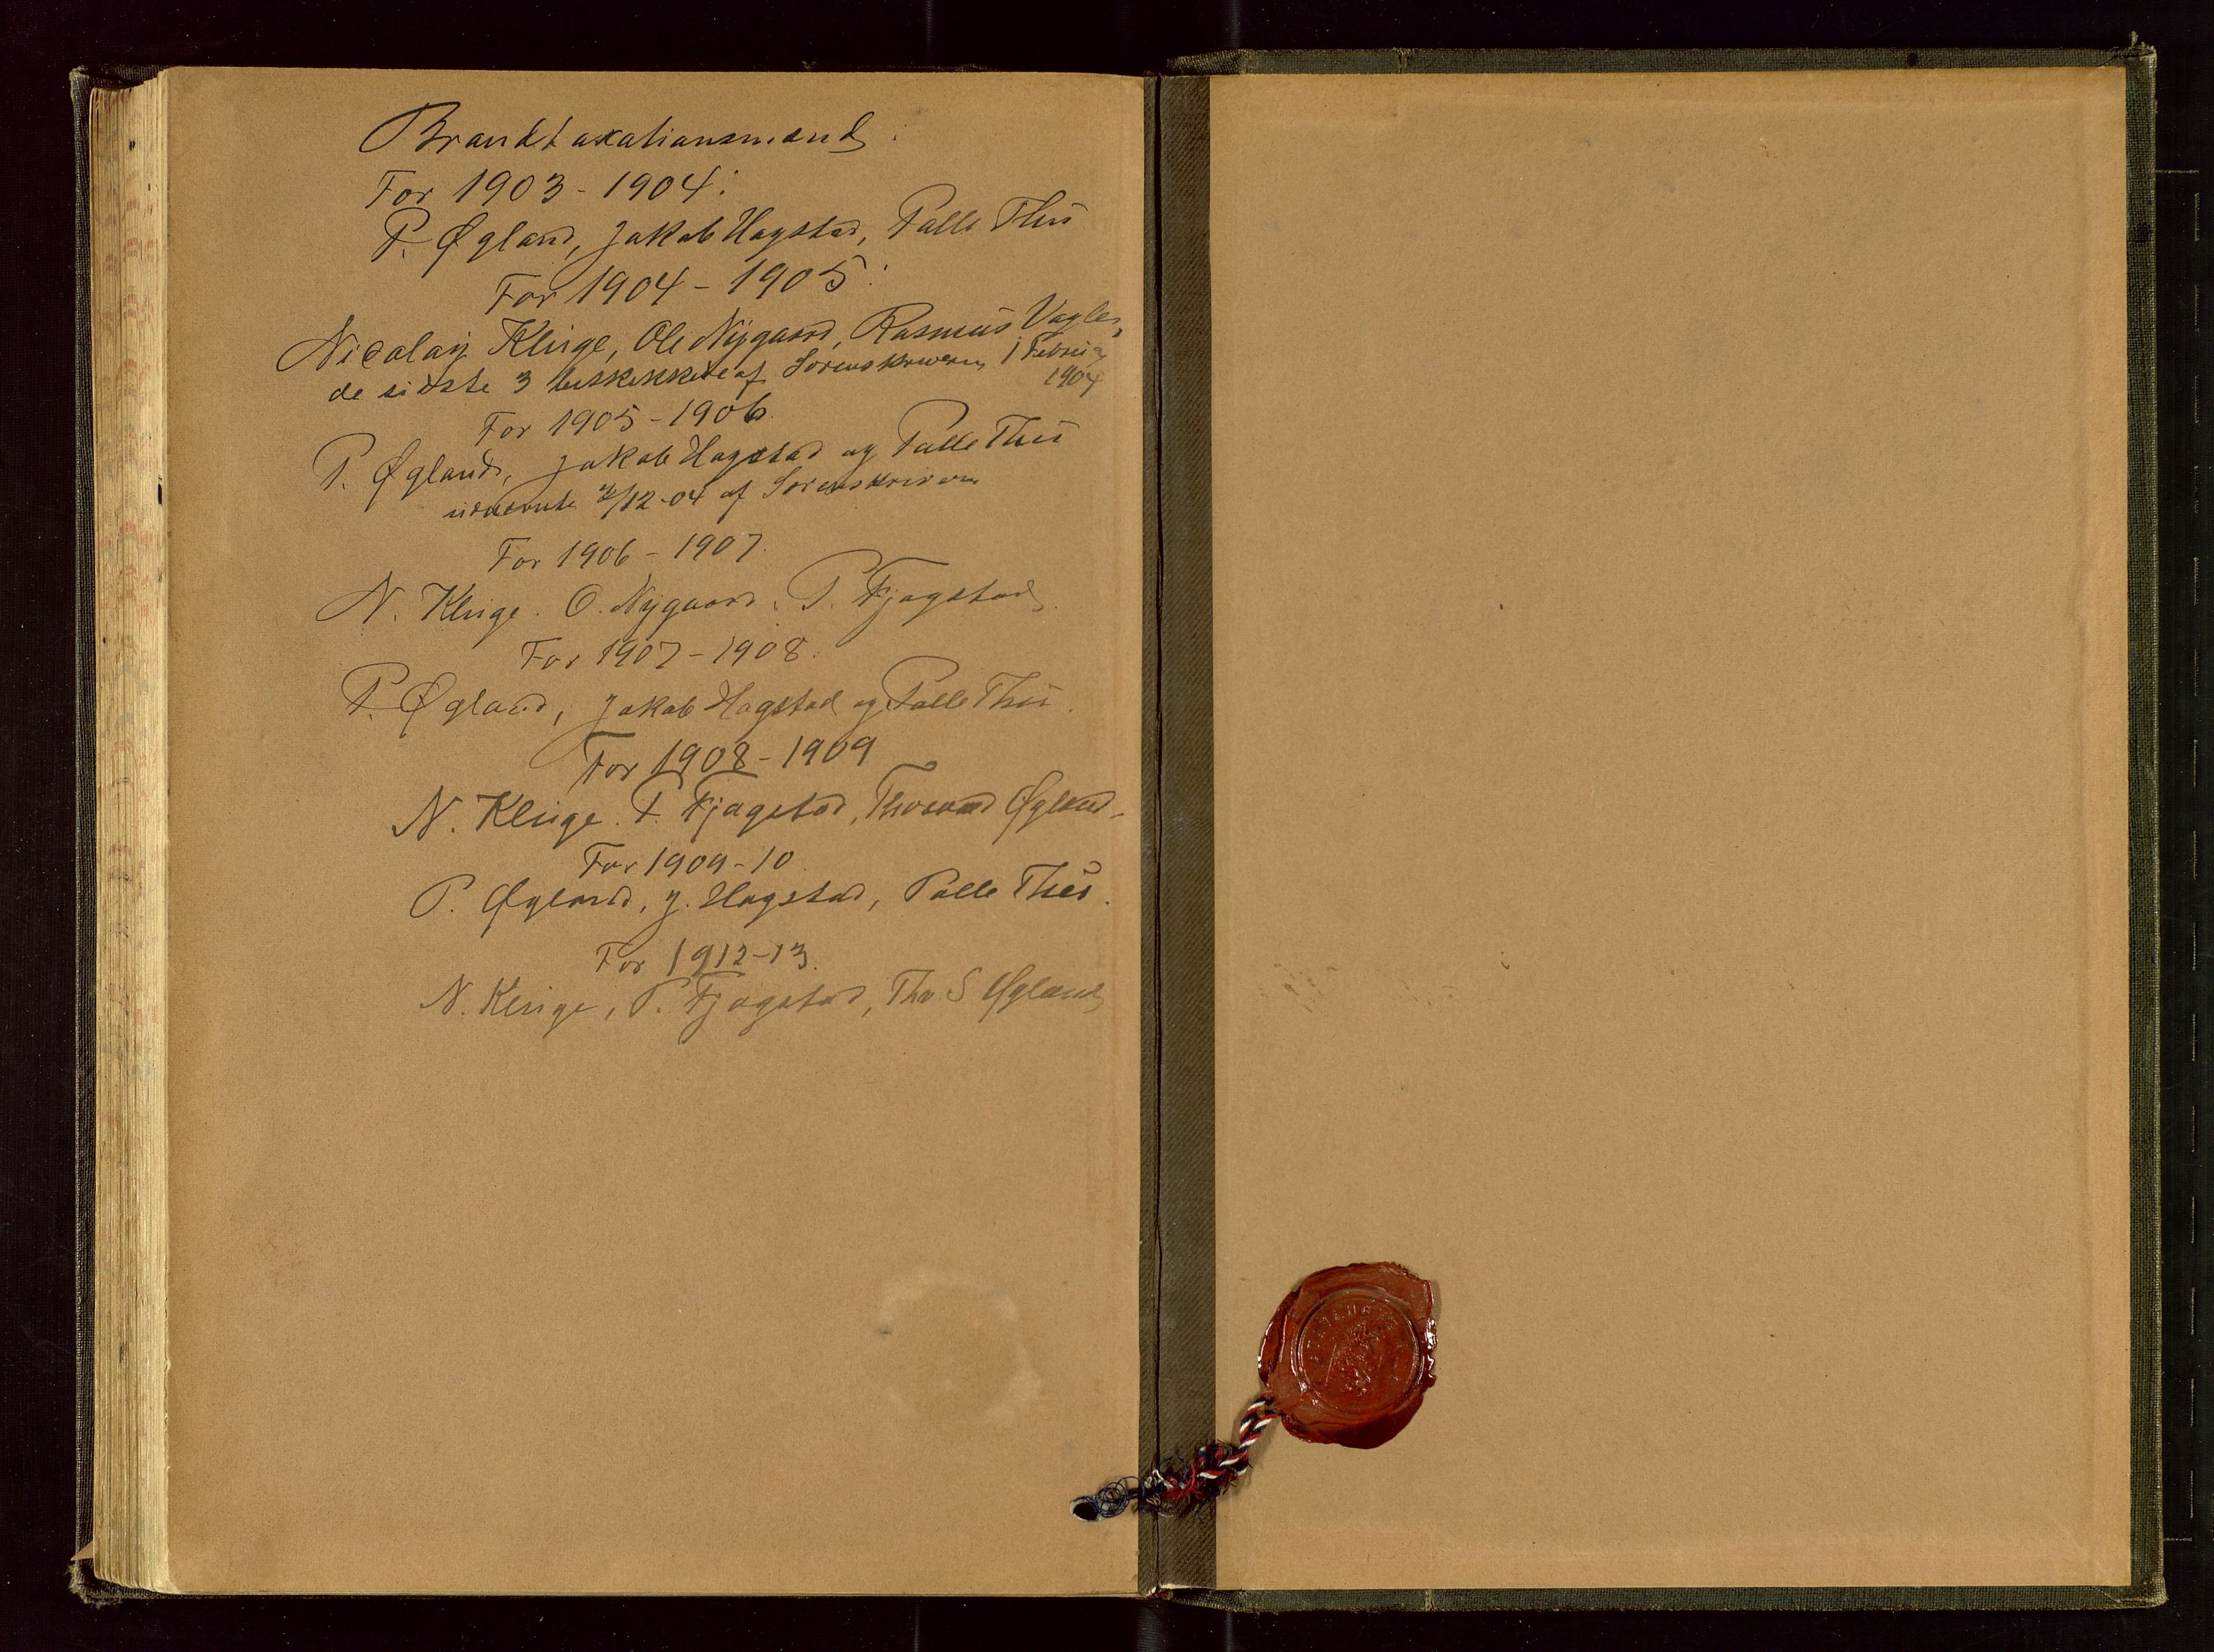 Brandtaxationsmænd
For 1903 - 1904:
P. Øgland, Jakob Hagstad, Palle Thu
For 1904 - 1905:
Nicolay Kluge, Ole Nygaard, Rasmus Vagle,
de sidste 3 beskikkede af Sorenskriveren i Februar
1904
For 1905 - 1906.
P. Øgland, Jakob Hagstad og Palle Thu
udnævnte /12-04 af Sorenskriveren
For 1906 - 1907.
N. Kluge. O. Nygaard. P. Fjagstad.
For 1907 - 1908.
P. Øgland, Jakob Hagstad og Palle Thu.
For 1908 - 1909
N. Kluge. P. Fjagstad, Thorvald Øgland.
For 1909 - 10
P. Øgland, J. Hagstad, Palle Thu.
For 1912 - 13.
N. Kluge, P. Fjagstad, Thv. S Øgland